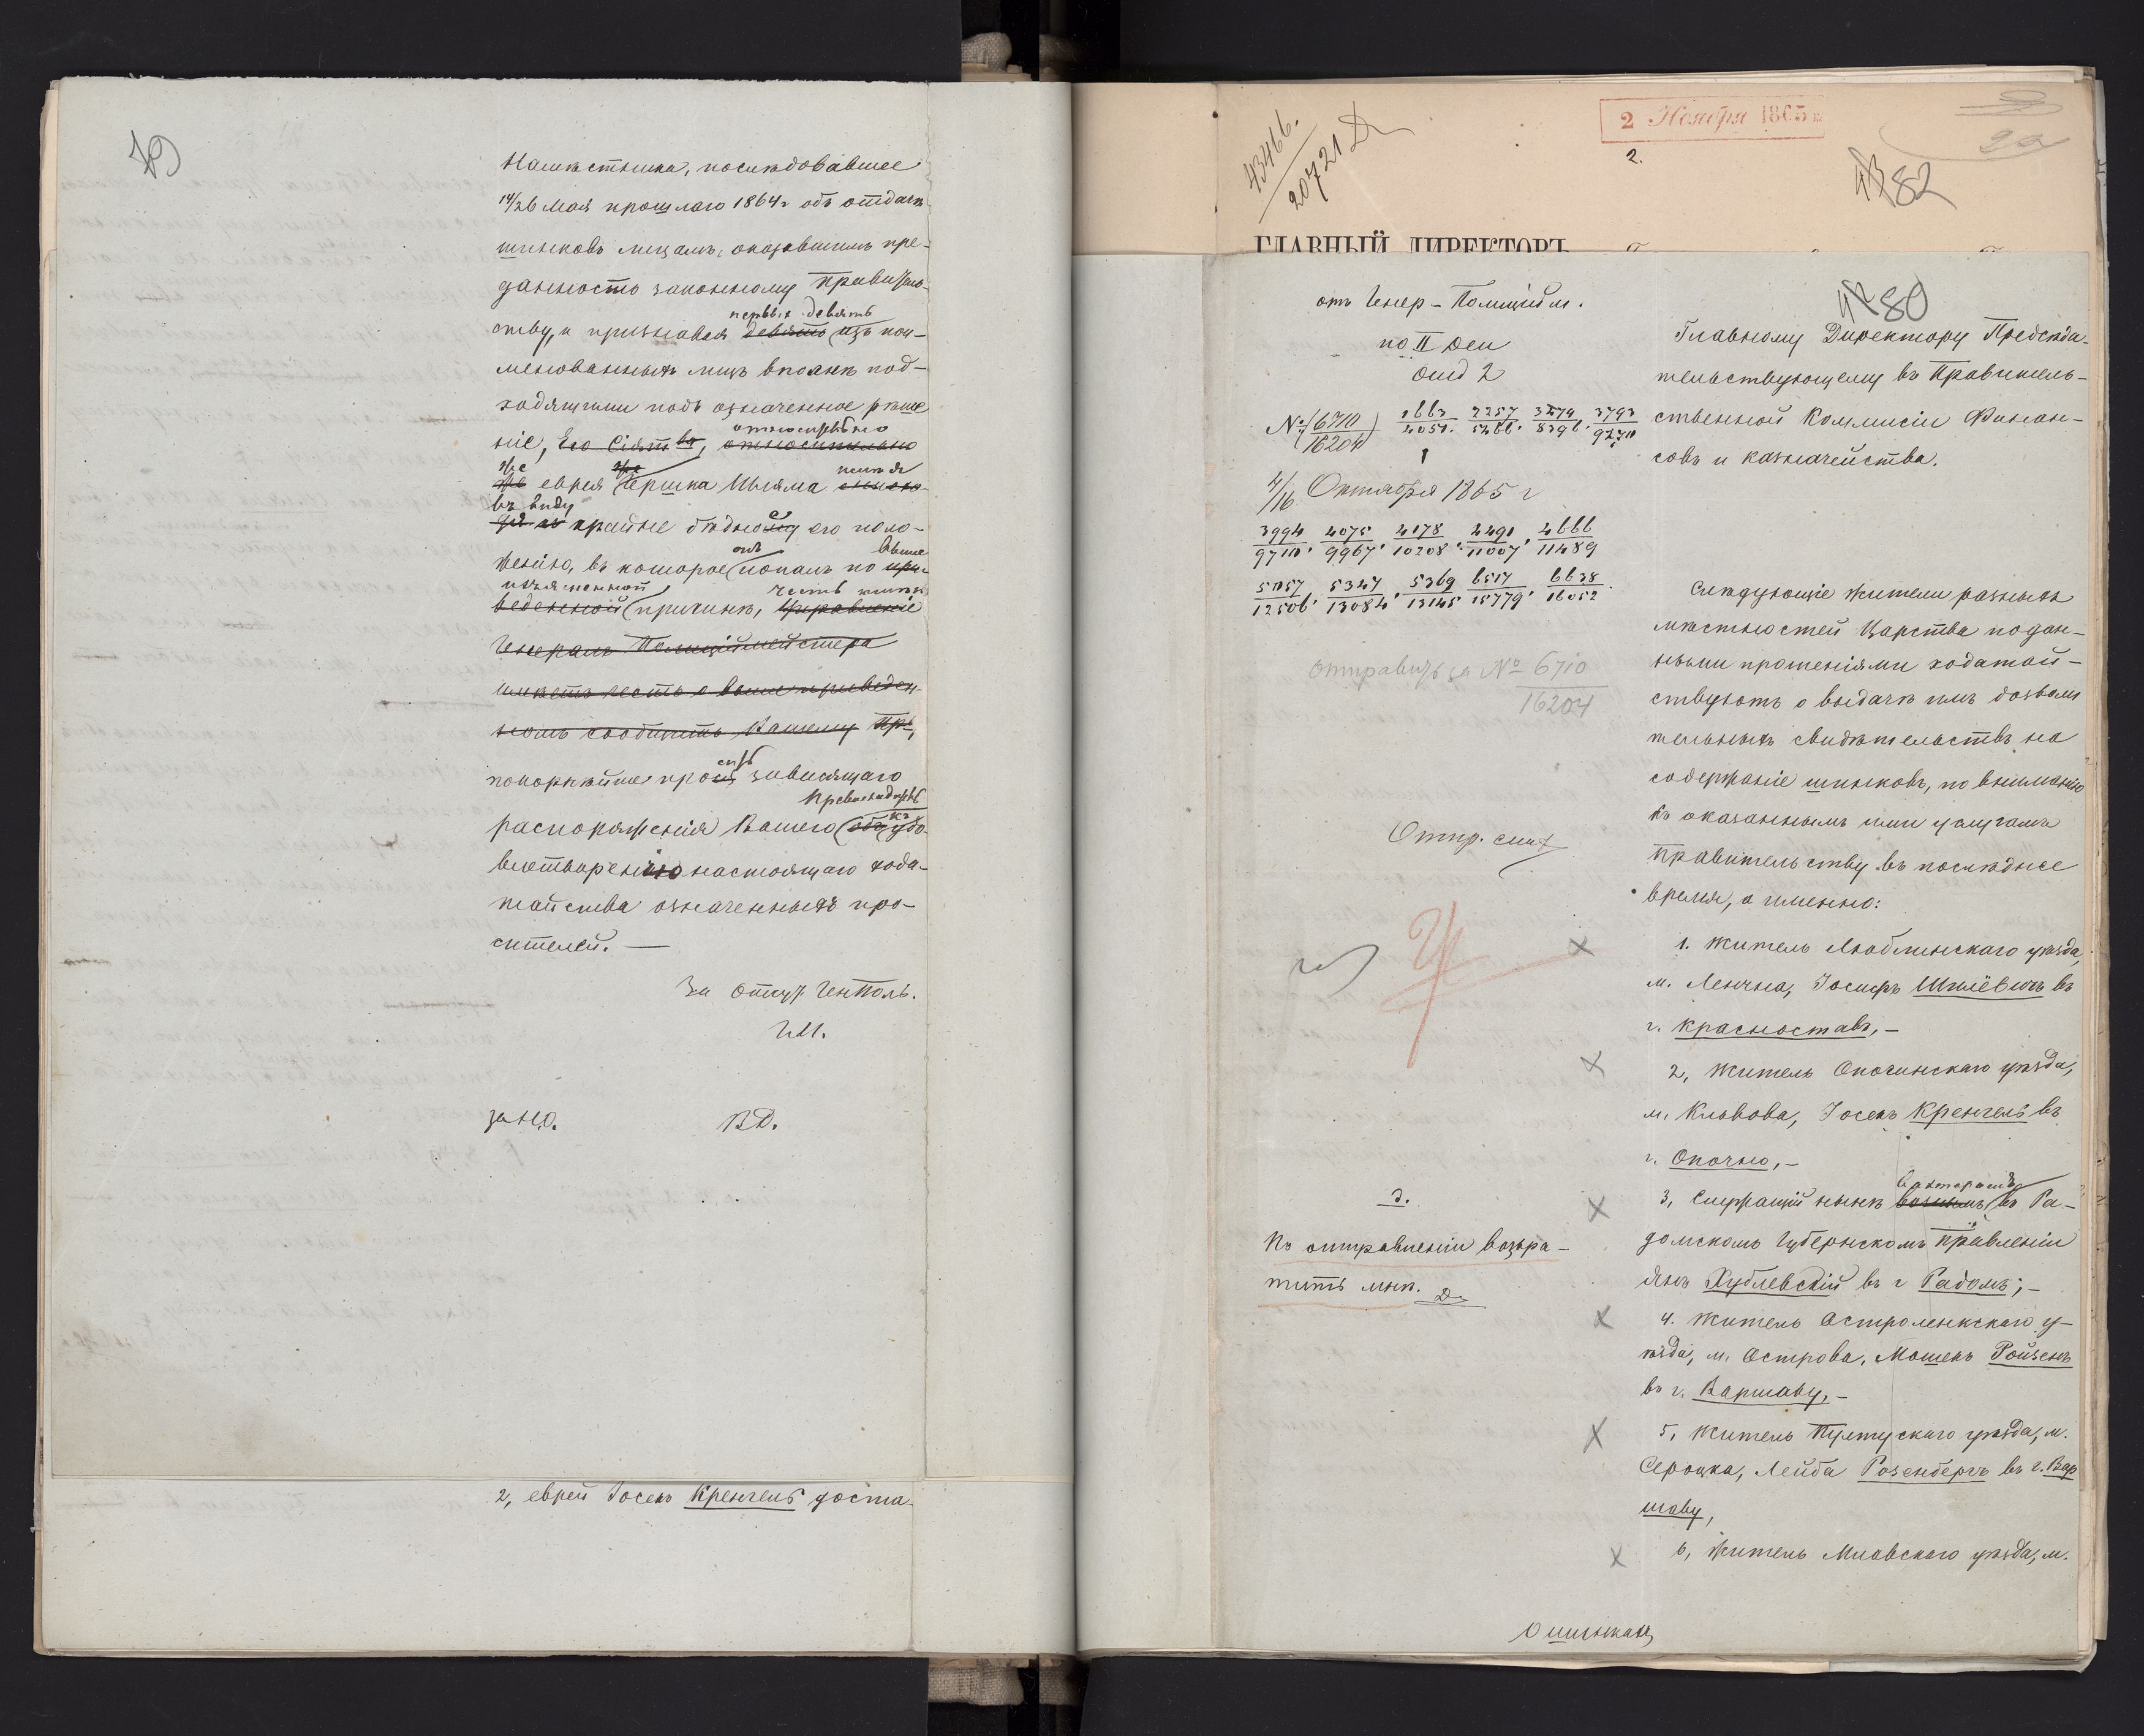 79
Намѣстника, послѣдовавшее
14/26 Мая прошлаго 1864 г объ отдачѣ
шинковъ лицамъ, оказавшимъ пре-
данность законному Правитель-
первыя девять
ству, и признавая девять изъ пои-
менованныхъ лицъ вполнѣ под-
ходящими подъ означенное рѣше
ніе, Его Сіят ва, относительно
относительно
же еврея Гершка Иляма
въ виду
крайне бѣдному его поло-
онъ выше
женію, въ которое попалъ по при-
изъясненной
веденной причинѣ, Управленіе
Генералъ Полиціймейстера
имѣетъ честь о вышеприведен-
номъ сообщить Вашему Пр-
покорнѣйше прося зависящаго
Превосходит
распоряженія Вашего объ удо-
къ
влетворенію настоящаго хода-
тайства означенныхъ про-
сителей. —
За Отсут. ГенПоль.
за Н.О. В.Д.
2, еврей Іосекъ Кренгель доста-
43466.
20721
2 Ноября 1865
2.
82
ГЛАВНЫЙ ДИРЕКТОРЪ
80
отъ Генер-Полицийм.
по II Дѣл
Отд 2
№ 6710/16204 1663/4051. 2257/5466. 3479/8396. 3793/9270
4/16 Октября 1865 г
3994/9710. 4075/9967. 4178/10208. 4491/11007. 4666/11489
5057/12506. 5347/13084. 5369/13145. 6517/15779. 6638/16052.
Отправить за № 6710
16204
По отправленіи возвра-
тить мнѣ.
Главному Директору Предсѣда-
тельствующему въ Правитель-
ственной Коммисіи Финан-
совъ и Казначейства.
Слѣдующіе жители разныхъ
мѣстностей Царства подан-
ными прошеніями ходатай-
ствуютъ о выдачѣ имъ дозволи
тельныхъ свидѣтельствъ на
содержаніе шинковъ, по вниманію
къ оказаннымъ ими услугамъ
Правительству въ послѣднее
время, а именно:
1. Житель Люблинскаго уѣзда,
м. Ленчна, Іосифъ Шмулёвичъ въ
г. Красноставъ, —
2, Житель Опочинскаго уѣзда,
м. Клвова, Іосекъ Кренгель въ
г. Опочно, —
Вахтеромъ
3, Служащій нынѣ въ Ра-
домскомъ Губернскомъ Правленіи
Янъ Хублевскій въ г Радомъ; —
4. Житель Остроленкскаго у-
ѣзда, м. Острова, Мошекъ Ройзенъ
въ г. Варшаву, —
5, Житель Пултускаго уѣзда, м.
Сероцка, Лейба Розенбергъ въ г. Вар
шаву,
6, Житель Млавскаго уѣзда, м.
О шинкахъ